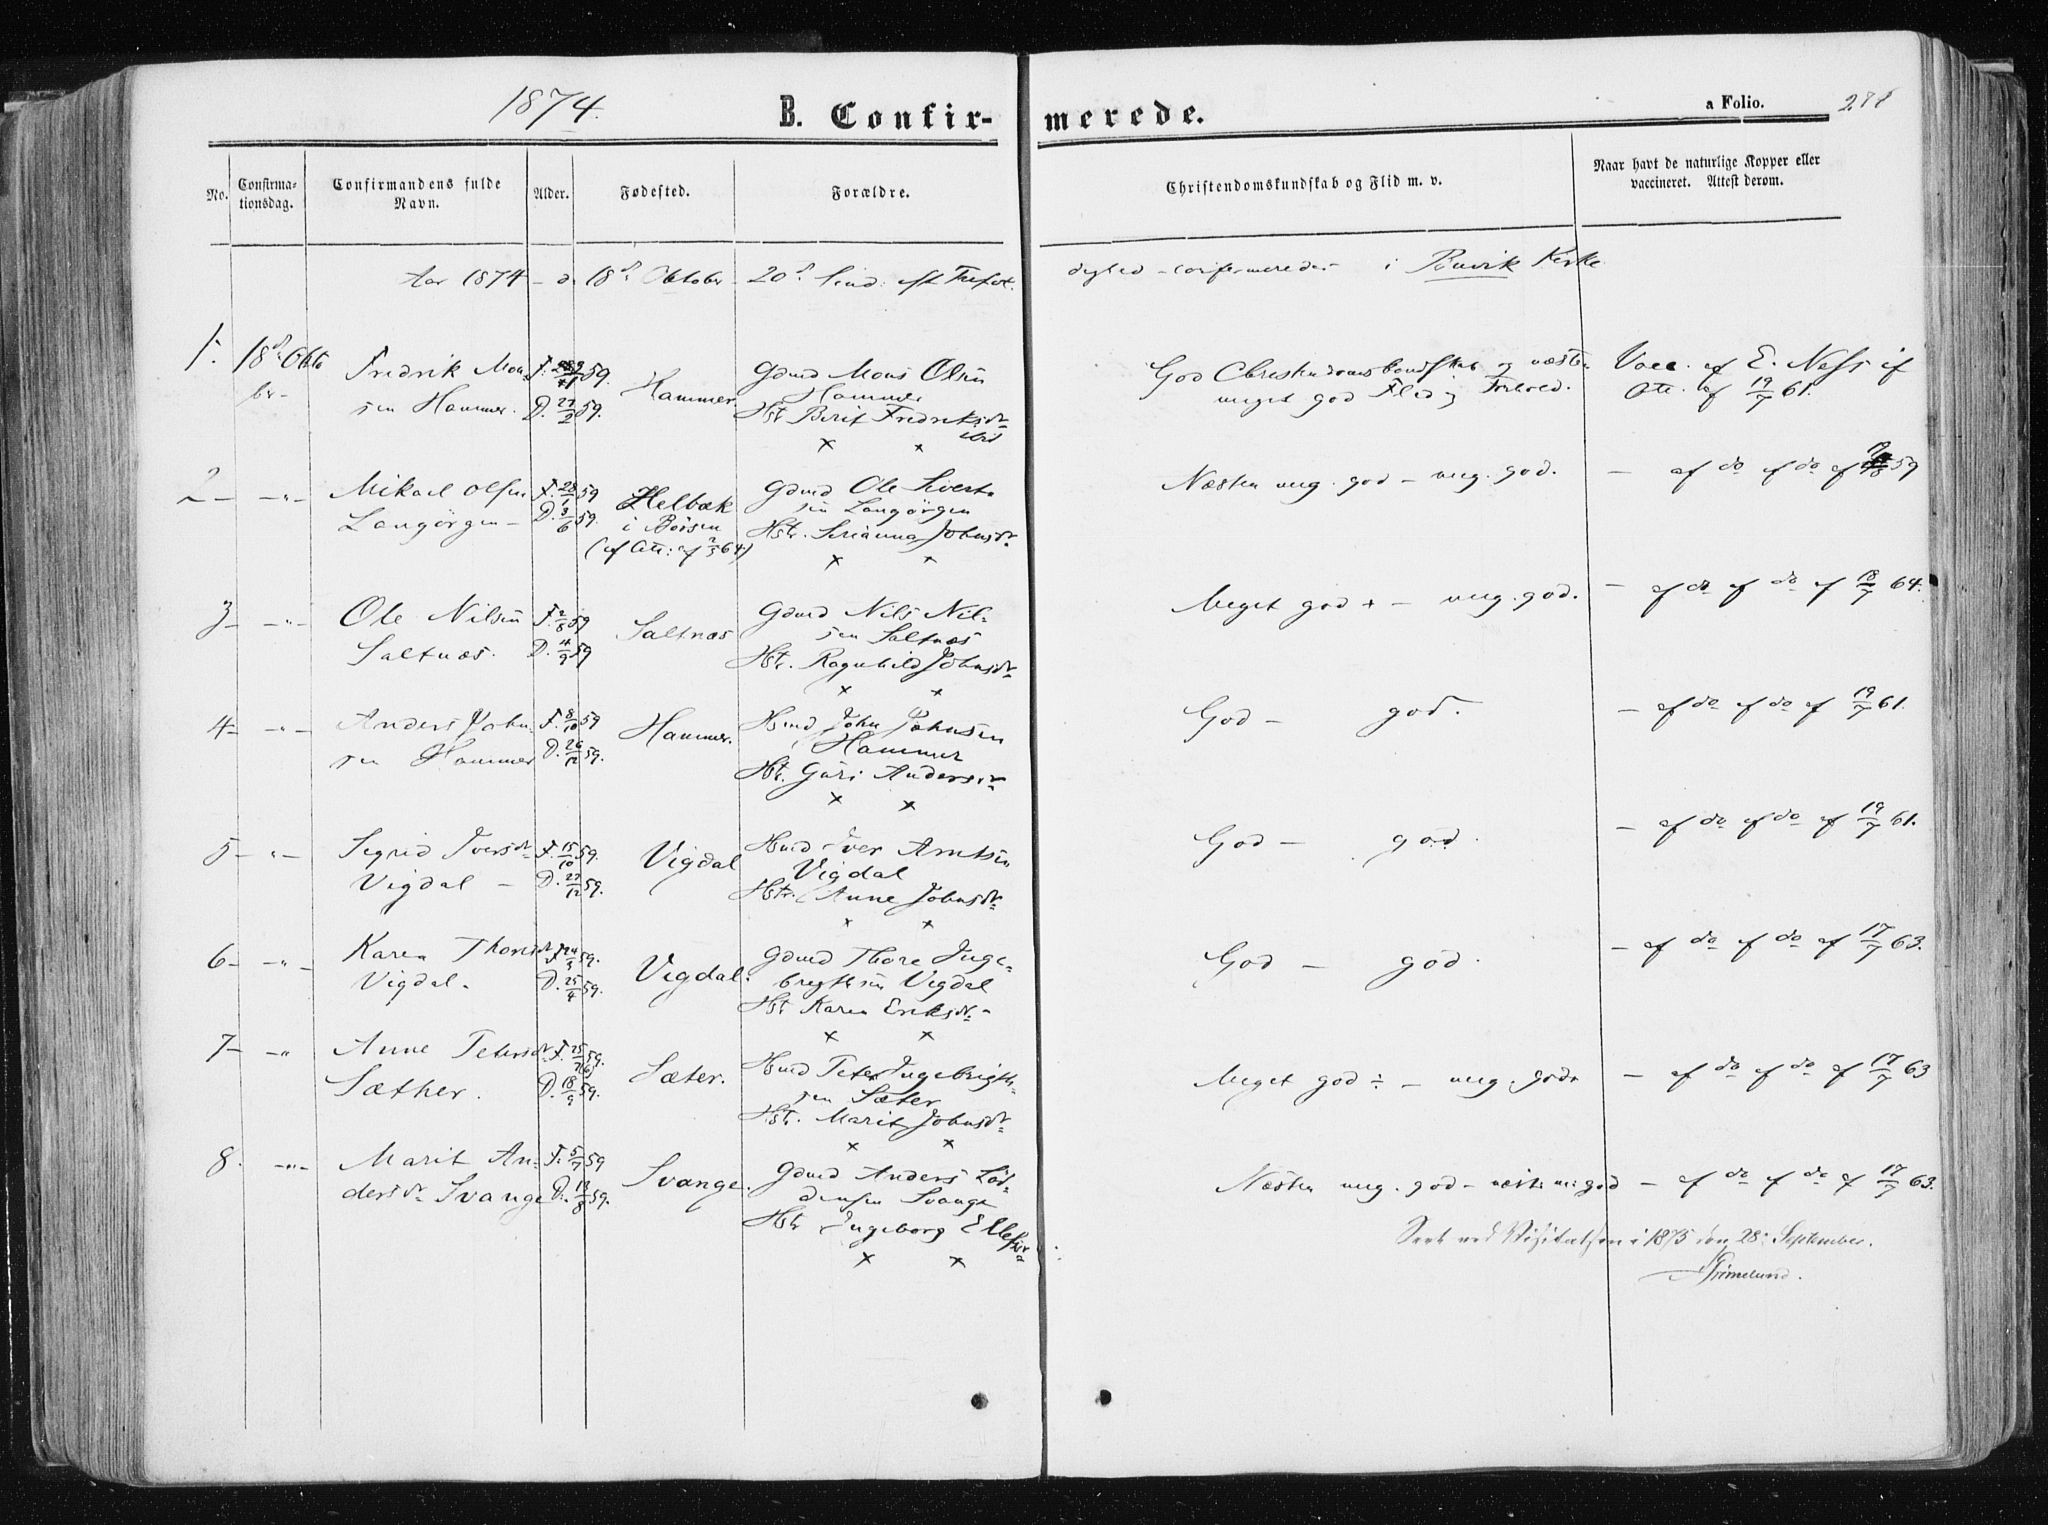 1874.
B. Confir-
merede.
a Folio.
No.
Confirma-
tionsdag.
Confirmandens fulde
Navn.
Alder.
Fødested.
Forældre.
Christendomskundskab og Flid m. v.
Naar havt de naturlige Kopper eller
vaccineret. Attest derom.
Aar 1874 – d 18d Oktober – 20d Sønd: eft Trefol.
dighed – confirmeredes i Buvik Kirke.
1. 18d Okto
ber –
Fredrik Mon
sen Hammer.
59.
D. 27/2 59.
Hammer.
Gdmd Mons Olsen
Hammer
Hst Berit Fredriksdr
ibid
x x
God Christendomskundskab og næsten
meget god Flid og Forhold.
Vacc. af E. Ness if
Att. af 19/7 61.
2 – –„–
Mikael Olsen
Langørgen –
F. 28/1 59
D. 3/6 59.
Helbæk
i Børsen
(if Att: af 2/5 64)
Gdmd Ole Siverts
sen Langørgen
Hstr. Serianna Johnsdr
x x
Næsten meg. god – meg. god.
– af do if do af 59
3 – –„–
Ole Nilsen
Saltnæs.
F. 2/8 59
D. 4/9 59
Saltnæs
Gdmd Nils Nil-
sen Saltnæs
Hst. Ragnhild Johnsdr
x x
Meget god + – meg. god.
– af do if do af 18/7 64.
4 – –„–
Anders John
sen Hammer
F. 8/10 59
D. 26/12 59.
Hammer.
Hsmd John Johnsen
Hammer
Hst. Guri Andersdr
x x
God – god.
– af do if do af 19/7 61.
5 – –„–
Sigrid Iversdr
Vigdal –
F. 15/10 59.
D. 27/12 59.
Vigdal
Hsmd Iver Arntsen
Vigdal
Hstr. Anne Johnsdr
x x
God – god.
– af do if do af 19/7 61.
6 – –„–
Karen Thoresdr
Vigdal.
F. 24/3 59.
D. 25/4 59.
Vigdal.
Gdmd Thore Inge-
brigtsen Vigdal
Hst Karen Eriksdr –
x x
God – god.
– af do if do af 17/7 63.
7 – –„
Anne Petersdr
Sæther.
F. 25/7 59.
D. 18/9 59.
Sæter.
Hsmd Peter Ingebrigt-
sen Sæter
Hst. Marit Johnsdr
x x
Meget god ÷ – meg. god +
– af do if do af 17/7 63
8. –„–
Marit An-
dersdr Svange
F. 5/7 59
D. 13/8 59.
Svange.
Gdmd Anders Lød-
densen Svange
Hstr Ingeborg Ellefsdr
x x
Næsten meg. god – næst. m. god
– af do if do af 17/7 63.
Seet ved Visitatsen i 1875 den 28: September.
Grimelund.